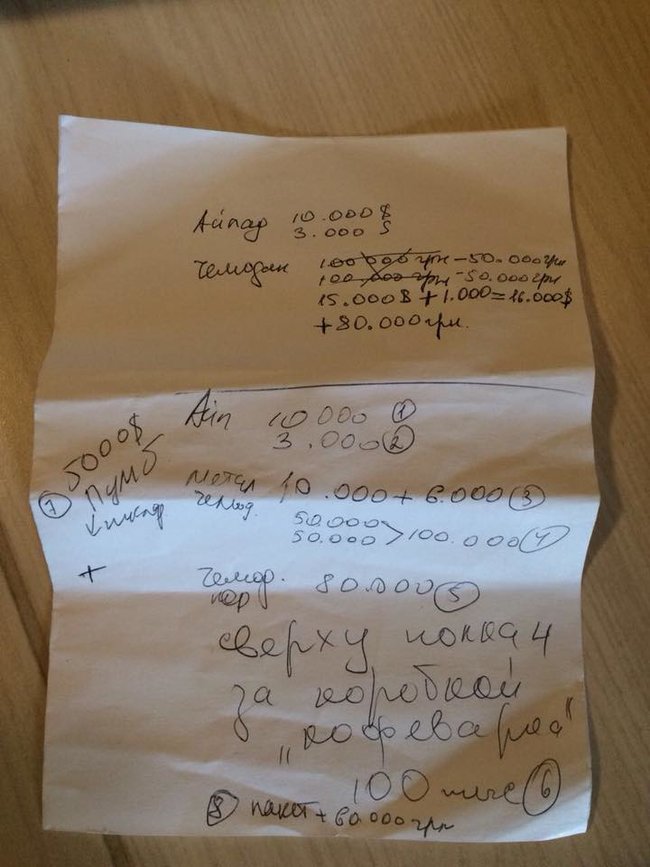 Айпад 10.000$
3.000 $
Чемодан 100 000 грн - 50.000 грн
100.000 грн - 50.000 грн
15.000$ + 1.000 = 16.000$
+ 80.000 грн.
Айп 10 000 ①
3.000 ②
метал чемод. 10.000 + 6.000 ③
50.000
50.000 > 100.000 ④
Чемод. кор 80.000 ⑤
сверху
за коробкой
"кофеварка"
100 тыс ⑥
⑦ 5000$
Пумб
+
⑧ пакет + 60.000 грн